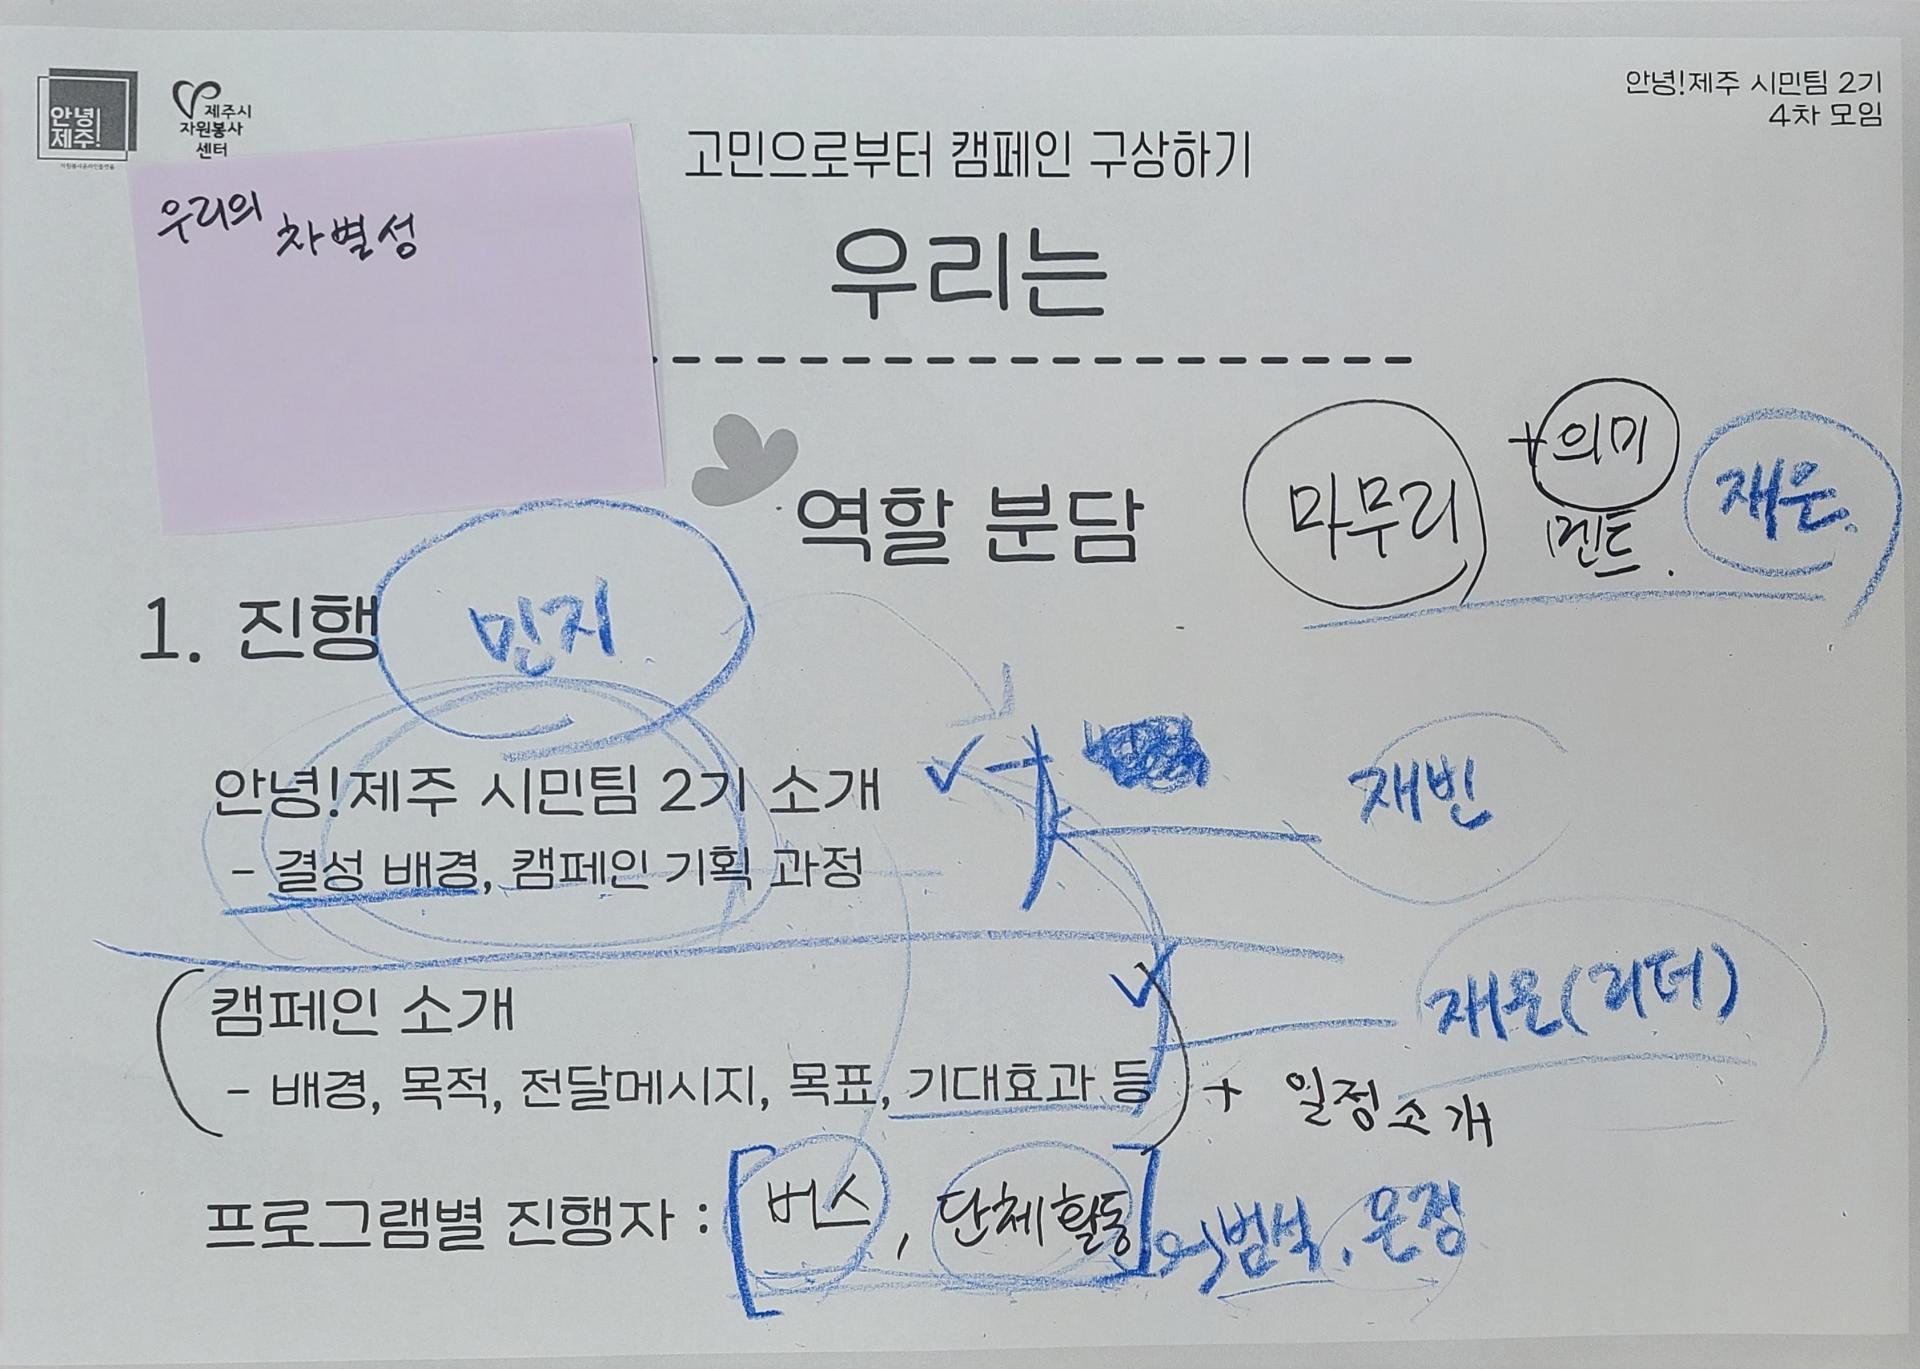 안녕!
제주!
제주시
자원봉사
센터
안녕!제주 시민팀 2기
4차 모임
고민으로부터 캠페인 구상하기
우리의
차별성
우리는
역할 분담
마무리 +의미 재은.
멘트.
1. 진행 민지.
안녕!제주 시민팀 2기 소개 재빈
- 결성 배경, 캠페인 기획 과정
캠페인 소개 재은(리더)
- 배경, 목적, 전달메시지, 목표, 기대효과 등 + 일정소개
프로그램별 진행자 : [버스, 단체활동] 범석, 은정